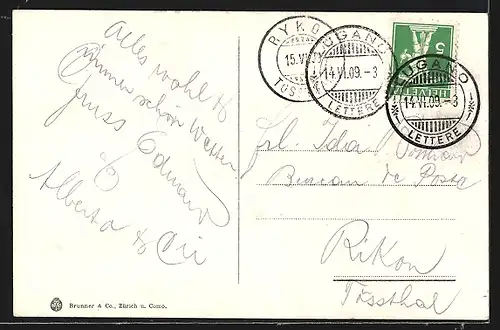 Alles wohl &
immer schön Wetter
Gruss Edmund
Alberto &
RYKO
15.VI.
TÖSS
LUGANO
14.VI.09.-3
LETTERE
5
HELVETIA
LUGANO
14.VI.09.-3
LETTERE
Frl. Ida
Bureau de Poste
Rikon
Tössthal
Brunner & Co., Zürich u. Como.